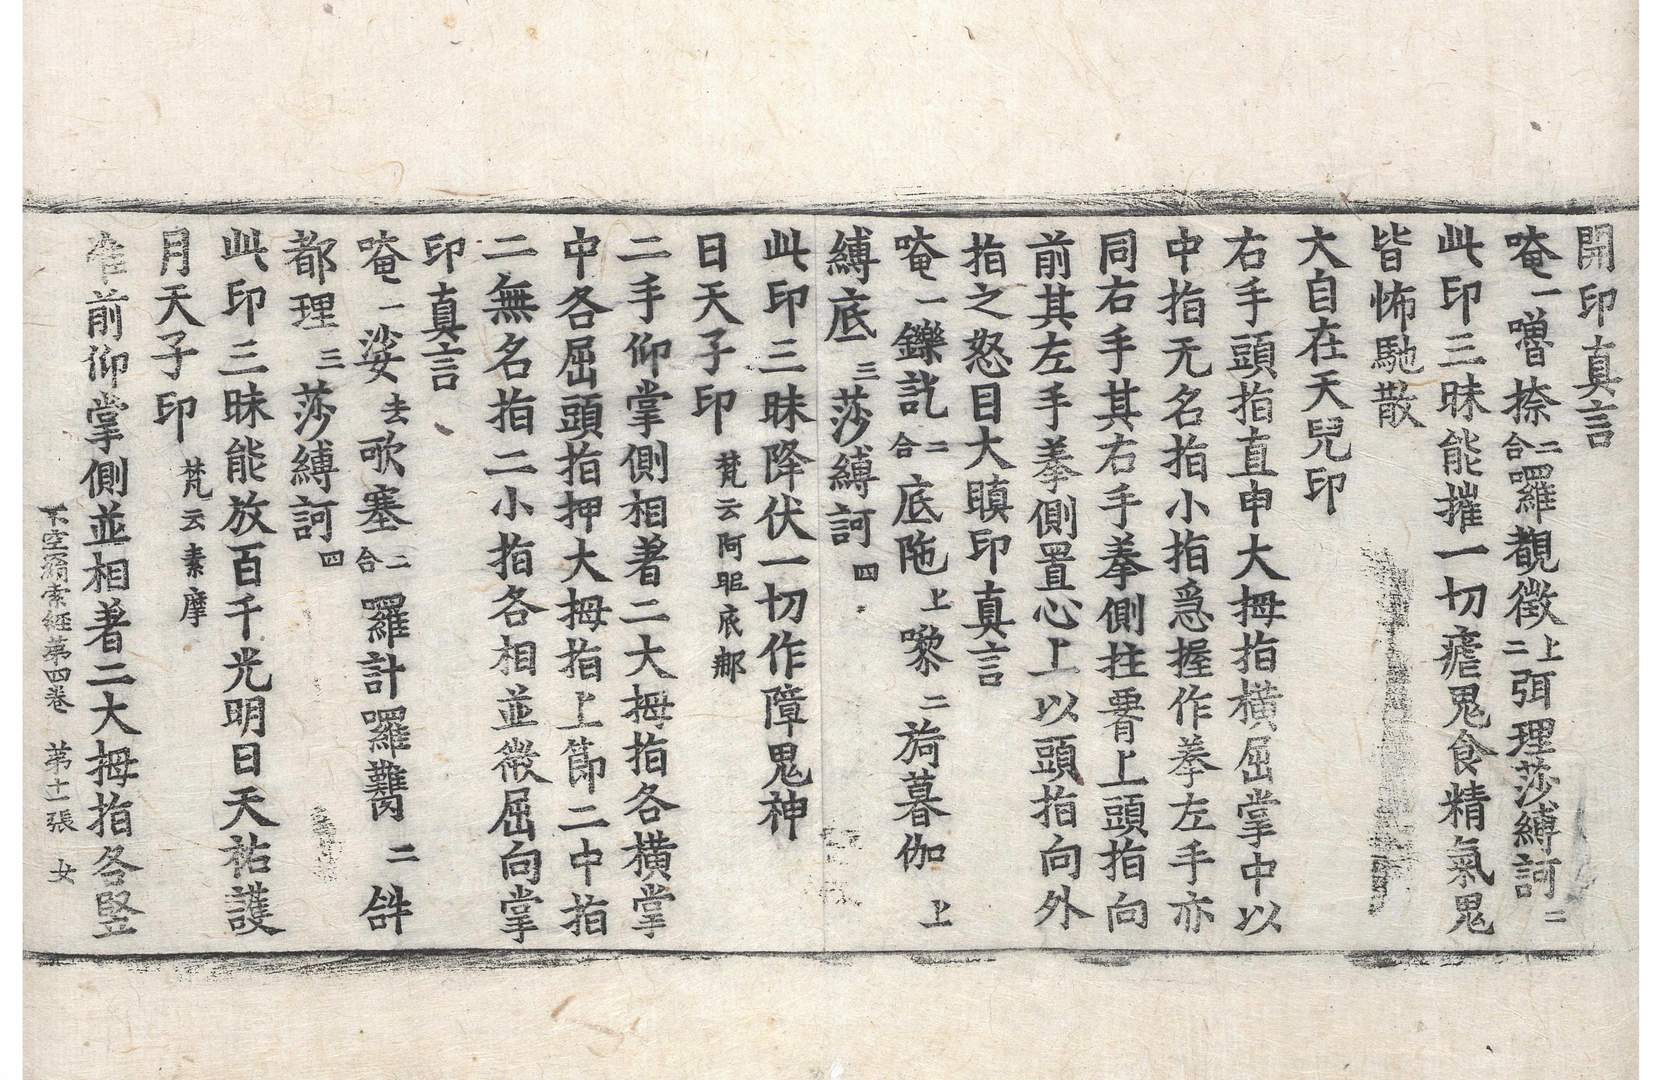 開印真言
唵一嚕捺二合囉覩徵上二弭理莎縛訶二
此印三昧能摧一切瘧鬼食精氣鬼
皆怖馳散
大自在天兒印
右手頭指直申大拇指橫屈掌中以
中指无名指小指急握作拳左手亦
同右手其右手拳側拄署上頭指向
前其左手拳側置心上以頭指向外
指之怒目大瞋印真言
唵一鑠訖二合底陁上嚟二旖暮伽上
縛底三莎縛訶四
此印三昧降伏一切作障鬼神
日天子印梵云阿昵底耶
二手仰掌側相著二大拇指各橫掌
中各屈頭指押大拇指上節二中指
二無名指二小指各相並微屈向掌
印真言
唵一娑去歌塞二合囉計囉䕼二餁
都理三莎縛訶四
此印三昧能放百千光明日天祐護
月天子印梵云素摩
准前仰掌側並相著二大拇指各竪
不空羂索經第四卷 第十一張 女